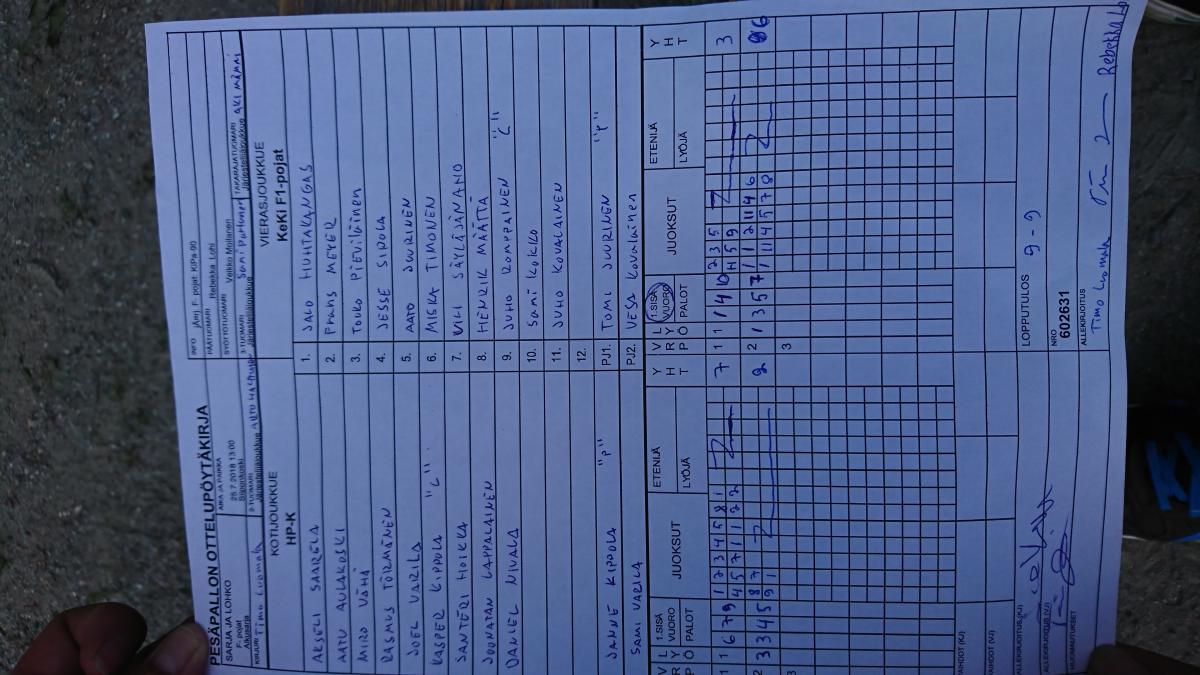 PESÄPALLON OTTELUPÖYTÄKIRJA
SARJA JA LOHKO
F-pojat
Alkusarja
AIKA JA PAIKKA
28.7.2018 13:00
INFO
F-pojat: KiPa-00
PÄÄTUOMARI Rebekka Lohi
SYÖTTÖTUOMARI Veikko Moilanen
KIRJURI Timo Luomala
2-TUOMARI
Järjestelijäjoukkue
3-TUOMARI
Järjestelijäjoukkue
TAKARAJATUOMARI
Järjestelijäjoukkue
KOTIJOUKKUE
HP-K
AKSELI SAARELA
AATU AULAKOSKI
MIRO VÄHÄ
RASMUS TÖRMÄNEN
JOEL VARILA
KASPER KIPPOLA "C"
SANTERI HOIKKA
JOONATAN LAPPALAINEN
NIVALA
JANNE KIPPOLA "P"
SAMI VARILA
VIERASJOUKKUE
KeKi F1-pojat
1. SALO HUHTAKANGAS
2. Frans MEYER
3. Touko Pieviläinen
4. JESSE SIPOLA
5. AATO JUURINEN
6. MISKA TIMONEN
7. VILI SÄYLÄJÄKANGO
8. HENRIK MÄÄTTÄ
9. JUHO ROMPPAINEN "C"
10. Sami KOKKO
11. JUHO KOVALAINEN
12.
PJ1. TOMI JUURINEN "P"
PJ2. VESA Kovalainen
VRP LYÖ 1.SISÄ VUORO PALOT JUOKSUT ETENIJÄ LYÖJÄ YHT
VRP LYÖ 1.SISÄ VUORO PALOT JUOKSUT ETENIJÄ LYÖJÄ YHT
1 1 6 7 9 1 2 3 4 5 8 1 7
4 5 7 1 1 2 2
1 1 1 4 10 2 3 5 3
4 5 9
2 3 3 4 5 8 7 2
9 1
2 1 3 5 7 1 1 2 11 4 6 6
1 1 4 5 7 8
3
3
VAIHDOT (KJ)
VAIHDOT (VJ)
ALLEKIRJOITUS (KJ)
ALLEKIRJOITUS (VJ)
HUOMAUTUKSET
LOPPUTULOS 9 - 9
NRO
602631
ALLEKIRJOITUS
Timo Luomala
Rebekka Lohi